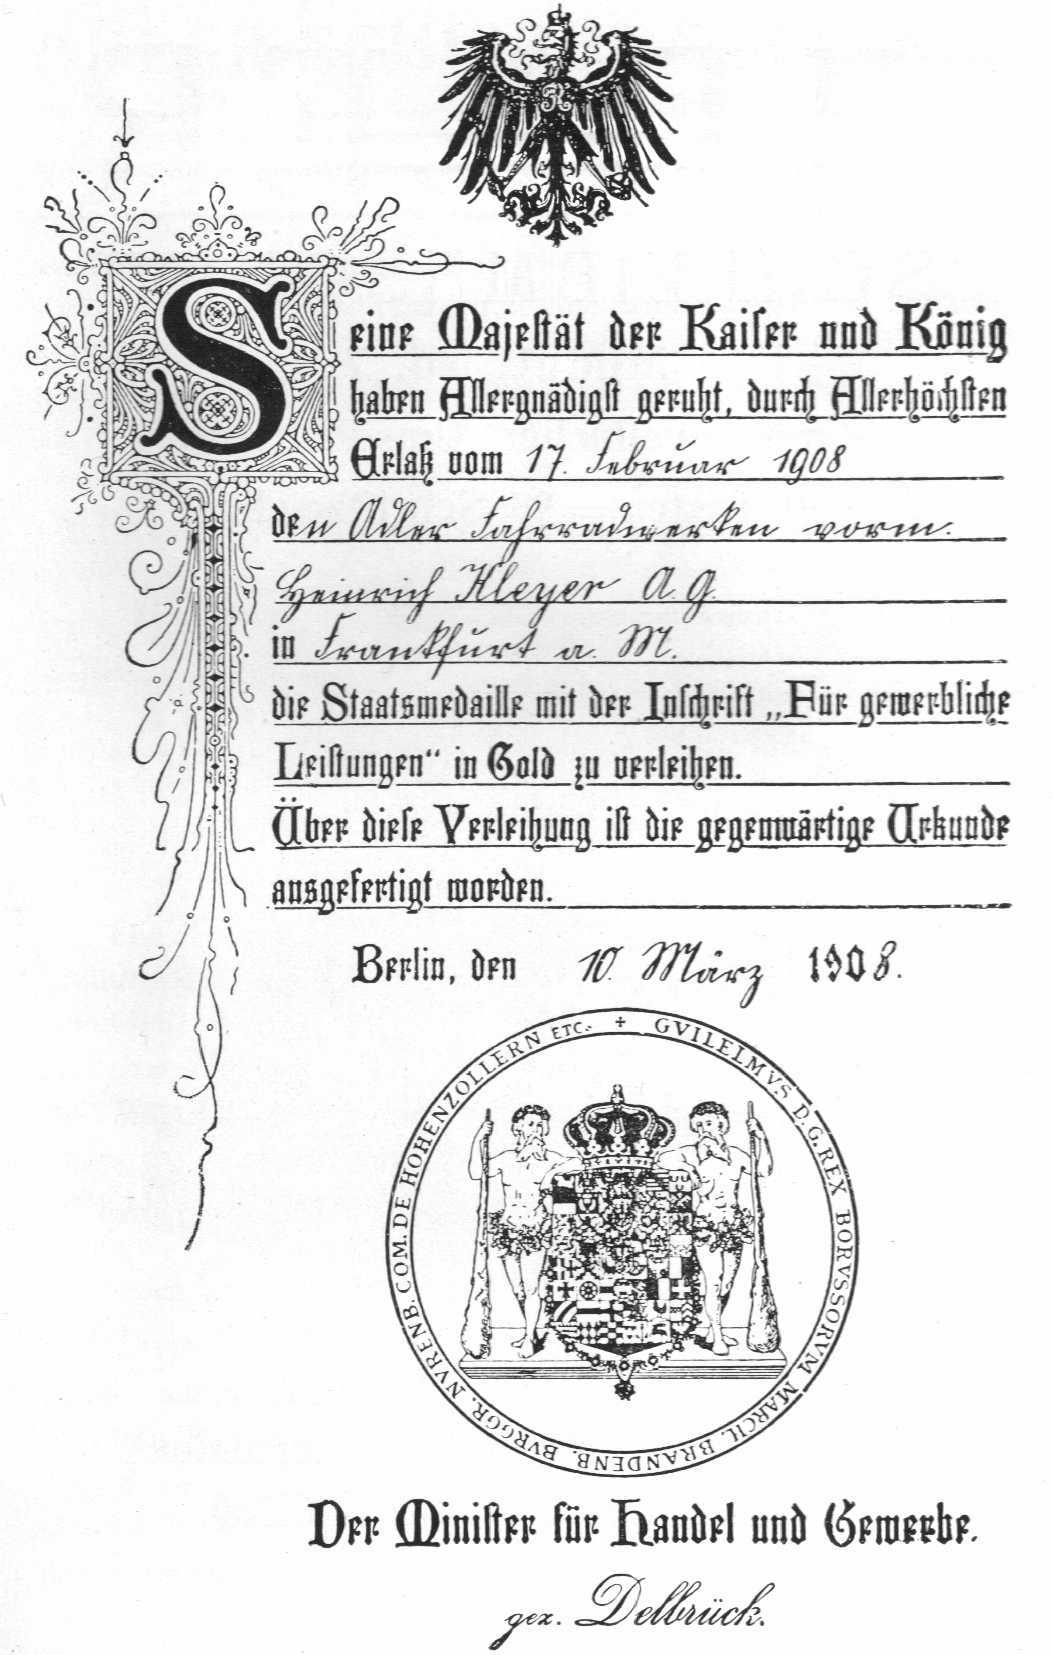 Seine Majestät der Kaiser und König
haben Allergnädigst geruht, durch Allerhöchsten
Erlaß vom 17. Februar 1908
den Adler Fahrradwerken vorm.
Heinrich Kleyer A. G.
in Frankfurt a. M.
die Staatsmedaille mit der Inschrift „Für gewerbliche
Leistungen“ in Gold zu verleihen.
Über diese Verleihung ist die gegenwärtige Urkunde
ausgefertigt worden.
Berlin, den 10. März 1908.
+ GVILELMVS D.G. REX BORVSSORVM MARCH. BRANDENB. BVRGGR. NVRENB. COM. DE HOHENZOLLERN ETC.
Der Minister für Handel und Gewerbe.
gez. Delbrück.